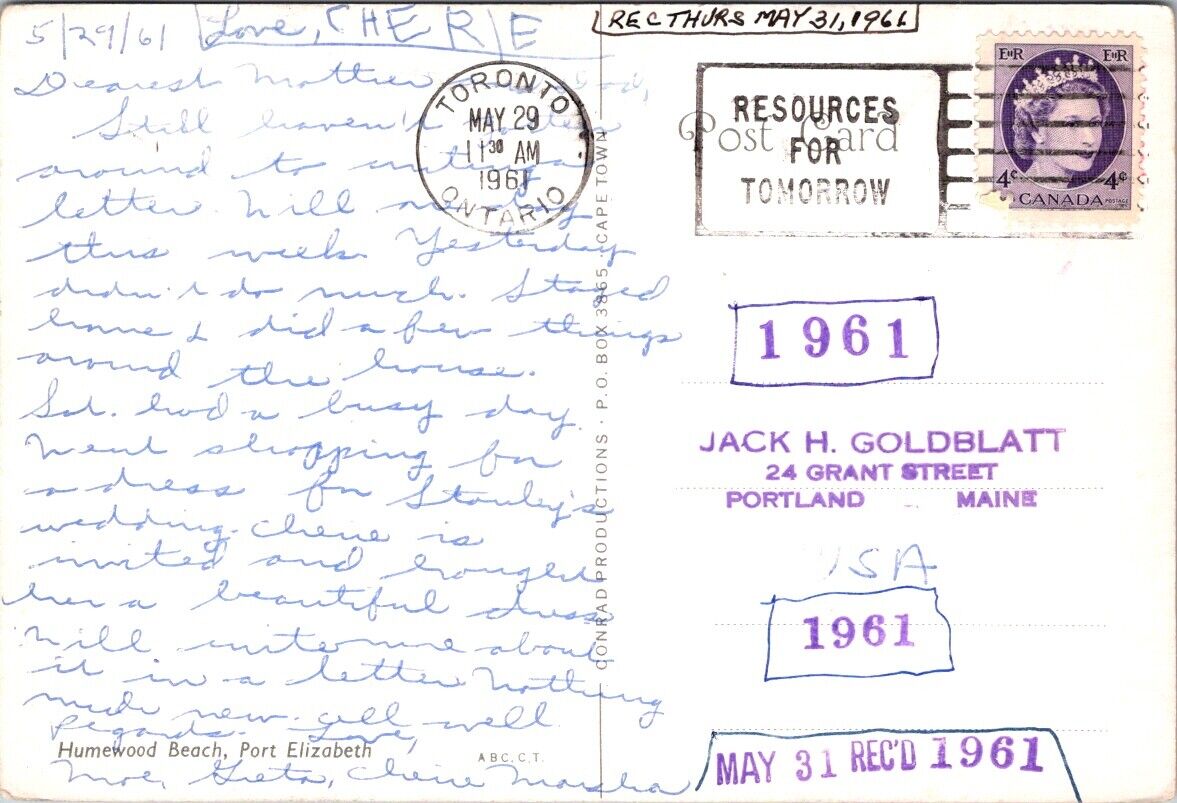 5/29/61 Love, CHERIE
Dearest Mother Dad,
Still haven't gotten
around to writing a
letter. Will
this week. Yesterday
didn't do much. Stayed
home & did a few things
around the house.
Sat. had a busy day.
Went shopping for
a dress for Stanley's
wedding. Cherie is
invited and bought
her a beautiful dress
Will write more about
it in a letter. Nothing
much new. all well
Regards. Love,
Moe, Greta, Cherie Marsha
Humewood Beach, Port Elizabeth
A.B.C.C.T.
CONRAD PRODUCTIONS · P.O. BOX 3865 · CAPE TOWN
REC THURS MAY 31, 1961
TORONTO
MAY 29
11 30 AM
1961
ONTARIO
RESOURCES
FOR
TOMORROW
Post Card
EIIR EIIR
4¢ 4¢
CANADA
POSTAGE
1961
JACK H. GOLDBLATT
24 GRANT STREET
PORTLAND MAINE
USA
1961
MAY 31 REC'D 1961